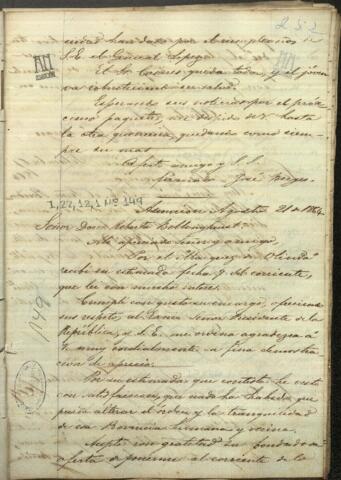 252
ciedad han dado por el cumpleaños de
S. E. el General Lopez.
El Sr. Casares queda todo, y el jóven
va robusteciendo su salud.
Esperando sus noticias por el próc-
simo paquete, me despido de V. hasta
la otra quincena, quedando como siem-
pre su mas
afecto amigo y S. S.
José Berges.
I,22,12,1 Nº 149
Asuncion Agosto 21 de 1864.
Señor Don
Mi apreciado Señor y amigo.
Por el Marquez de Olinda
recibí su estimada fecha del corriente,
que leí con mucho interes.
Cumplí con gusto su encargo, ofreciendo
sus respetos, al Exmo Señor Presidente de la
República, y S. E. me ordena agradezca á
V. muy cordialmente su fina demostra-
cion de aprecio.
Por su estimada que contesto, he visto
con satisfaccion que nada ha habido que
pueda alterar el órden y la tranquilidad
de esa Provincia hermana y vecina.
Acepto con gratitud su bondadosa
oferta de ponerme al corriente de lo
149
AN
ASUNCIÓN
AN
ASUNCIÓN